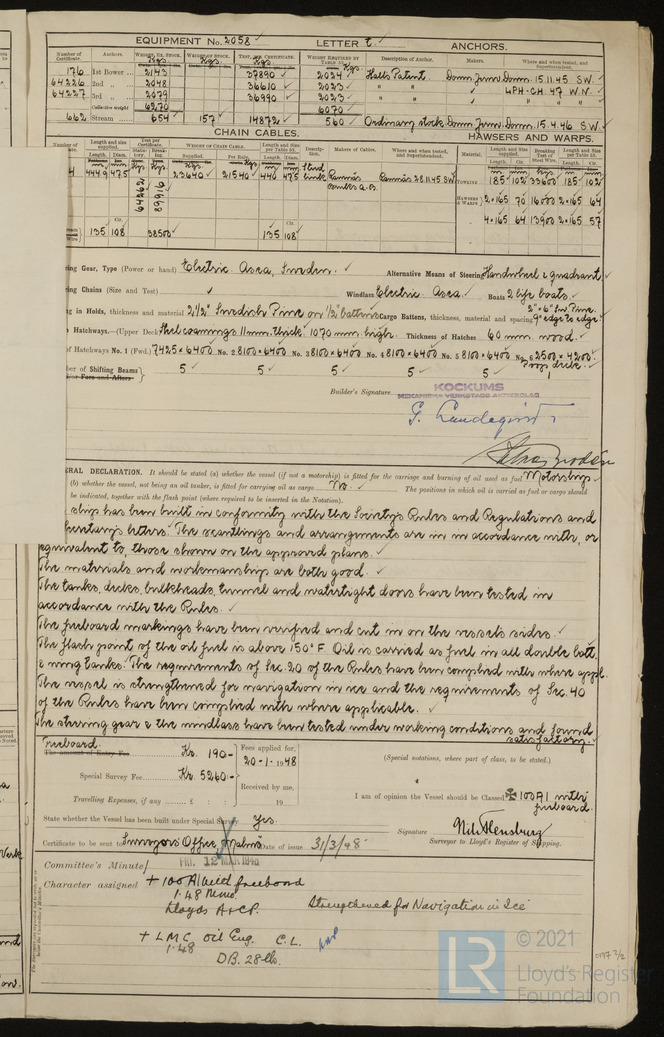 EQUIPMENT No. 2058 LETTER t. ANCHORS.
Number of Certificate. Anchors. WEIGHT, EX. STOCK. WEIGHT OF STOCK. TEST, PER CERTIFICATE. WEIGHT REQUIRED BY TABLE 53. Description of Anchor. Makers. Where and when tested, and Superintendent.
Kgs Kgs. Kgs. Kgs.
176 1st Bower 2143 37890 ✓ 2024 Halls Patent. Domn. Jernv. Domn. 15.11.45 S.W.
64226 2nd 2048 36610 ✓ 2023 " " ✓ LPH-CH. 47 W.N.
64227 3rd 2079 36990 ✓ 2023 " "
Collective weight 6270 6070
662 Stream 654 157 14872 ✓ 560 Ordinary stock Domn. Jernv. Domn. 15.4.46 S.W.
CHAIN CABLES. HAWSERS AND WARPS.
Number of Certificate. Length and size supplied. Test per Certificate. WEIGHT OF CHAIN CABLE. Length and size per Table 53. Description. Makers of Cables. Where and when tested, and Superintendent. Material. Length and Size supplied. Breaking Test of Steel Wire. Length and Size per Table 53.
Length. Diam. Supplied. Per Rule. Length. Diam.
4 444.9 47.5 64262 89916 23640 ✓ 21540 ✓ 440 47.5 Stud link Ramnäs Bruks a.B. Ramnäs 28.11.45 SW TOWLINE 185 102 33600 185 102
HAWSERS & WARPS 2×165 70 16000 2×165 64
4×165 64 13900 2×165 57
135 108 38500 135 108
ring Gear, Type (Power or hand) Electric. Asea, Sweden. ✓ Alternative Means of Steering Handwheel & quadrant
ring Chains (Size and Test) ✓ Windlass Electric Asea. Boats 2 life boats.
ng in Holds, thickness and material 2½" Swedish Pine on ½" battens Cargo Battens, thickness, material and spacing 2"×6" Sw. Pine. 9" edge to edge
Hatchways.—(Upper Deck) Steel coamings 11 mm. thick. 1070 mm. high. Thickness of Hatches 60 mm. wood.
of Hatchways No. 1 (Fwd.) 7425×6400 No. 2 8100×6400 No. 3 8100×6400 No. 4 8100×6400 No. 5 8100×6400 No. 6 2500×4200
Poop deck.
ber of Shifting Beams 5 ✓ 5 ✓ 5 ✓ 5 ✓ 5 1
Builder's Signature
KOCKUMS
MEKANISKA VERKSTADS AKTIEBOLAG
ERAL DECLARATION. It should be stated (a) whether the vessel (if not a motorship) is fitted for the carriage and burning of oil used as fuel Motorship
(b) whether the vessel, not being an oil tanker, is fitted for carrying oil as cargo No. The positions in which oil is carried as fuel or cargo should
be indicated, together with the flash point (where required to be inserted in the Notation).
ship has been built in conformity with the Society's Rules and Regulations and
Secretary's letters. The scantlings and arrangements are in accordance with, or
equivalent to, those shown on the approved plans. ✓
The materials and workmanship are both good. ✓
The tanks, decks, bulkheads, tunnel and watertight doors have been tested in
accordance with the Rules. ✓
The freeboard markings have been verified and cut in on the vessels sides. ✓
The flash point of the oil fuel is above 150° F. Oil is carried as fuel in all double bott.
& wing tanks. The requirements of Sec. 20 of the Rules have been complied with where appl.
The vessel is strengthened for navigation in ice and the requirements of Sec. 40
of the Rules have been complied with where applicable. ✓
The steering gear & the windlass have been tested under working conditions and found
satisfactory. ✓
Freeboard.
The amount of Entry Fee Kr. 190-
Fees applied for, 20-1-1948
(Special notations, where part of class, to be stated.)
Special Survey Fee Kr. 5260-
Received by me,
Travelling Expenses, if any £ : : 19
I am of opinion the Vessel should be Classed ✠100A1 with
freeboard.
State whether the Vessel has been built under Special Survey Yes.
Signature
Certificate to be sent to Surveyors Office, Malmö Date of issue 31/3/48
Surveyor to Lloyd's Register of Shipping.
FRI. 12 MAR 1948
Committee's Minute
Character assigned +100A1 with freeboard
1.48 Mmo.
Lloyds A&CP. Strengthened for Navigation in Ice
+ LMC Oil Eng. C.L.
1.48
D.B. 28 lb.
© 2021
LR
Lloyd's Register
Foundation